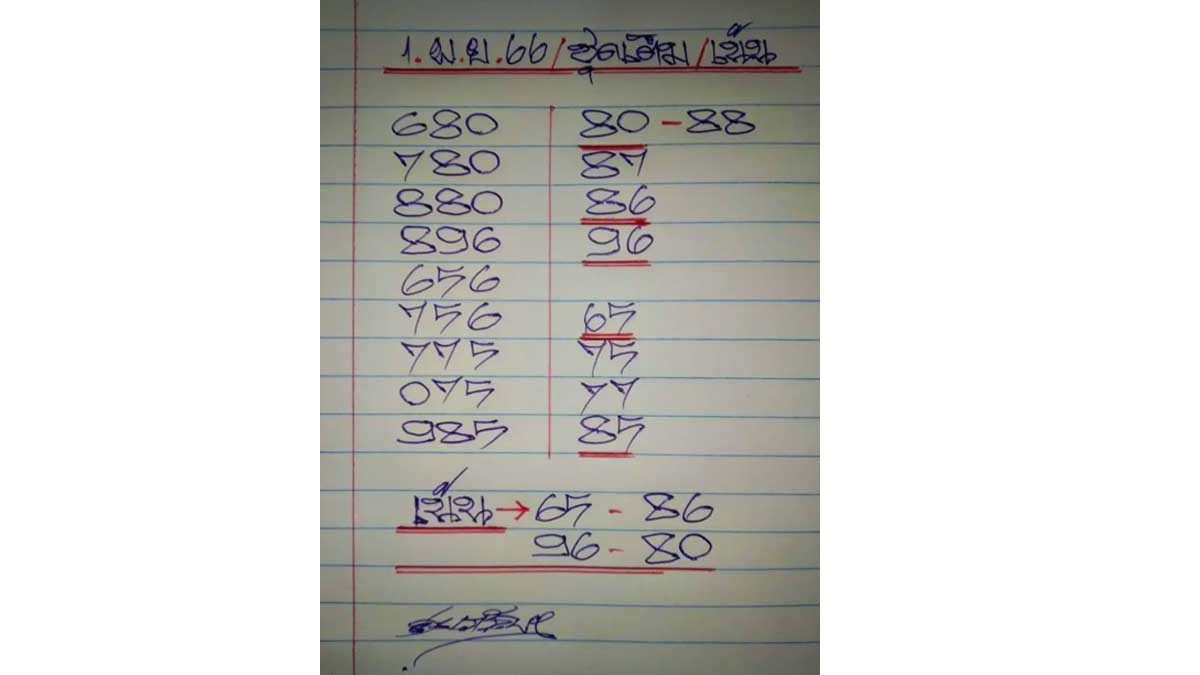 1.ม.ย.66/ชุดเดิม/เน้น
680 80-88
780 87
880 86
896 96
656
756 65
775 75
075 77
985 85
เน้น→65 - 86
96 - 80